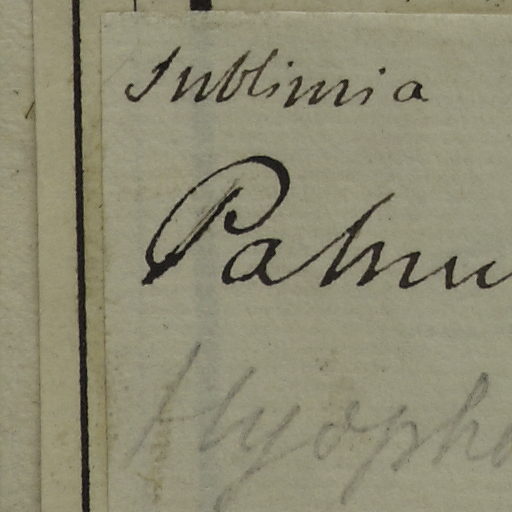 Sublimia
Palmu
Hyopho